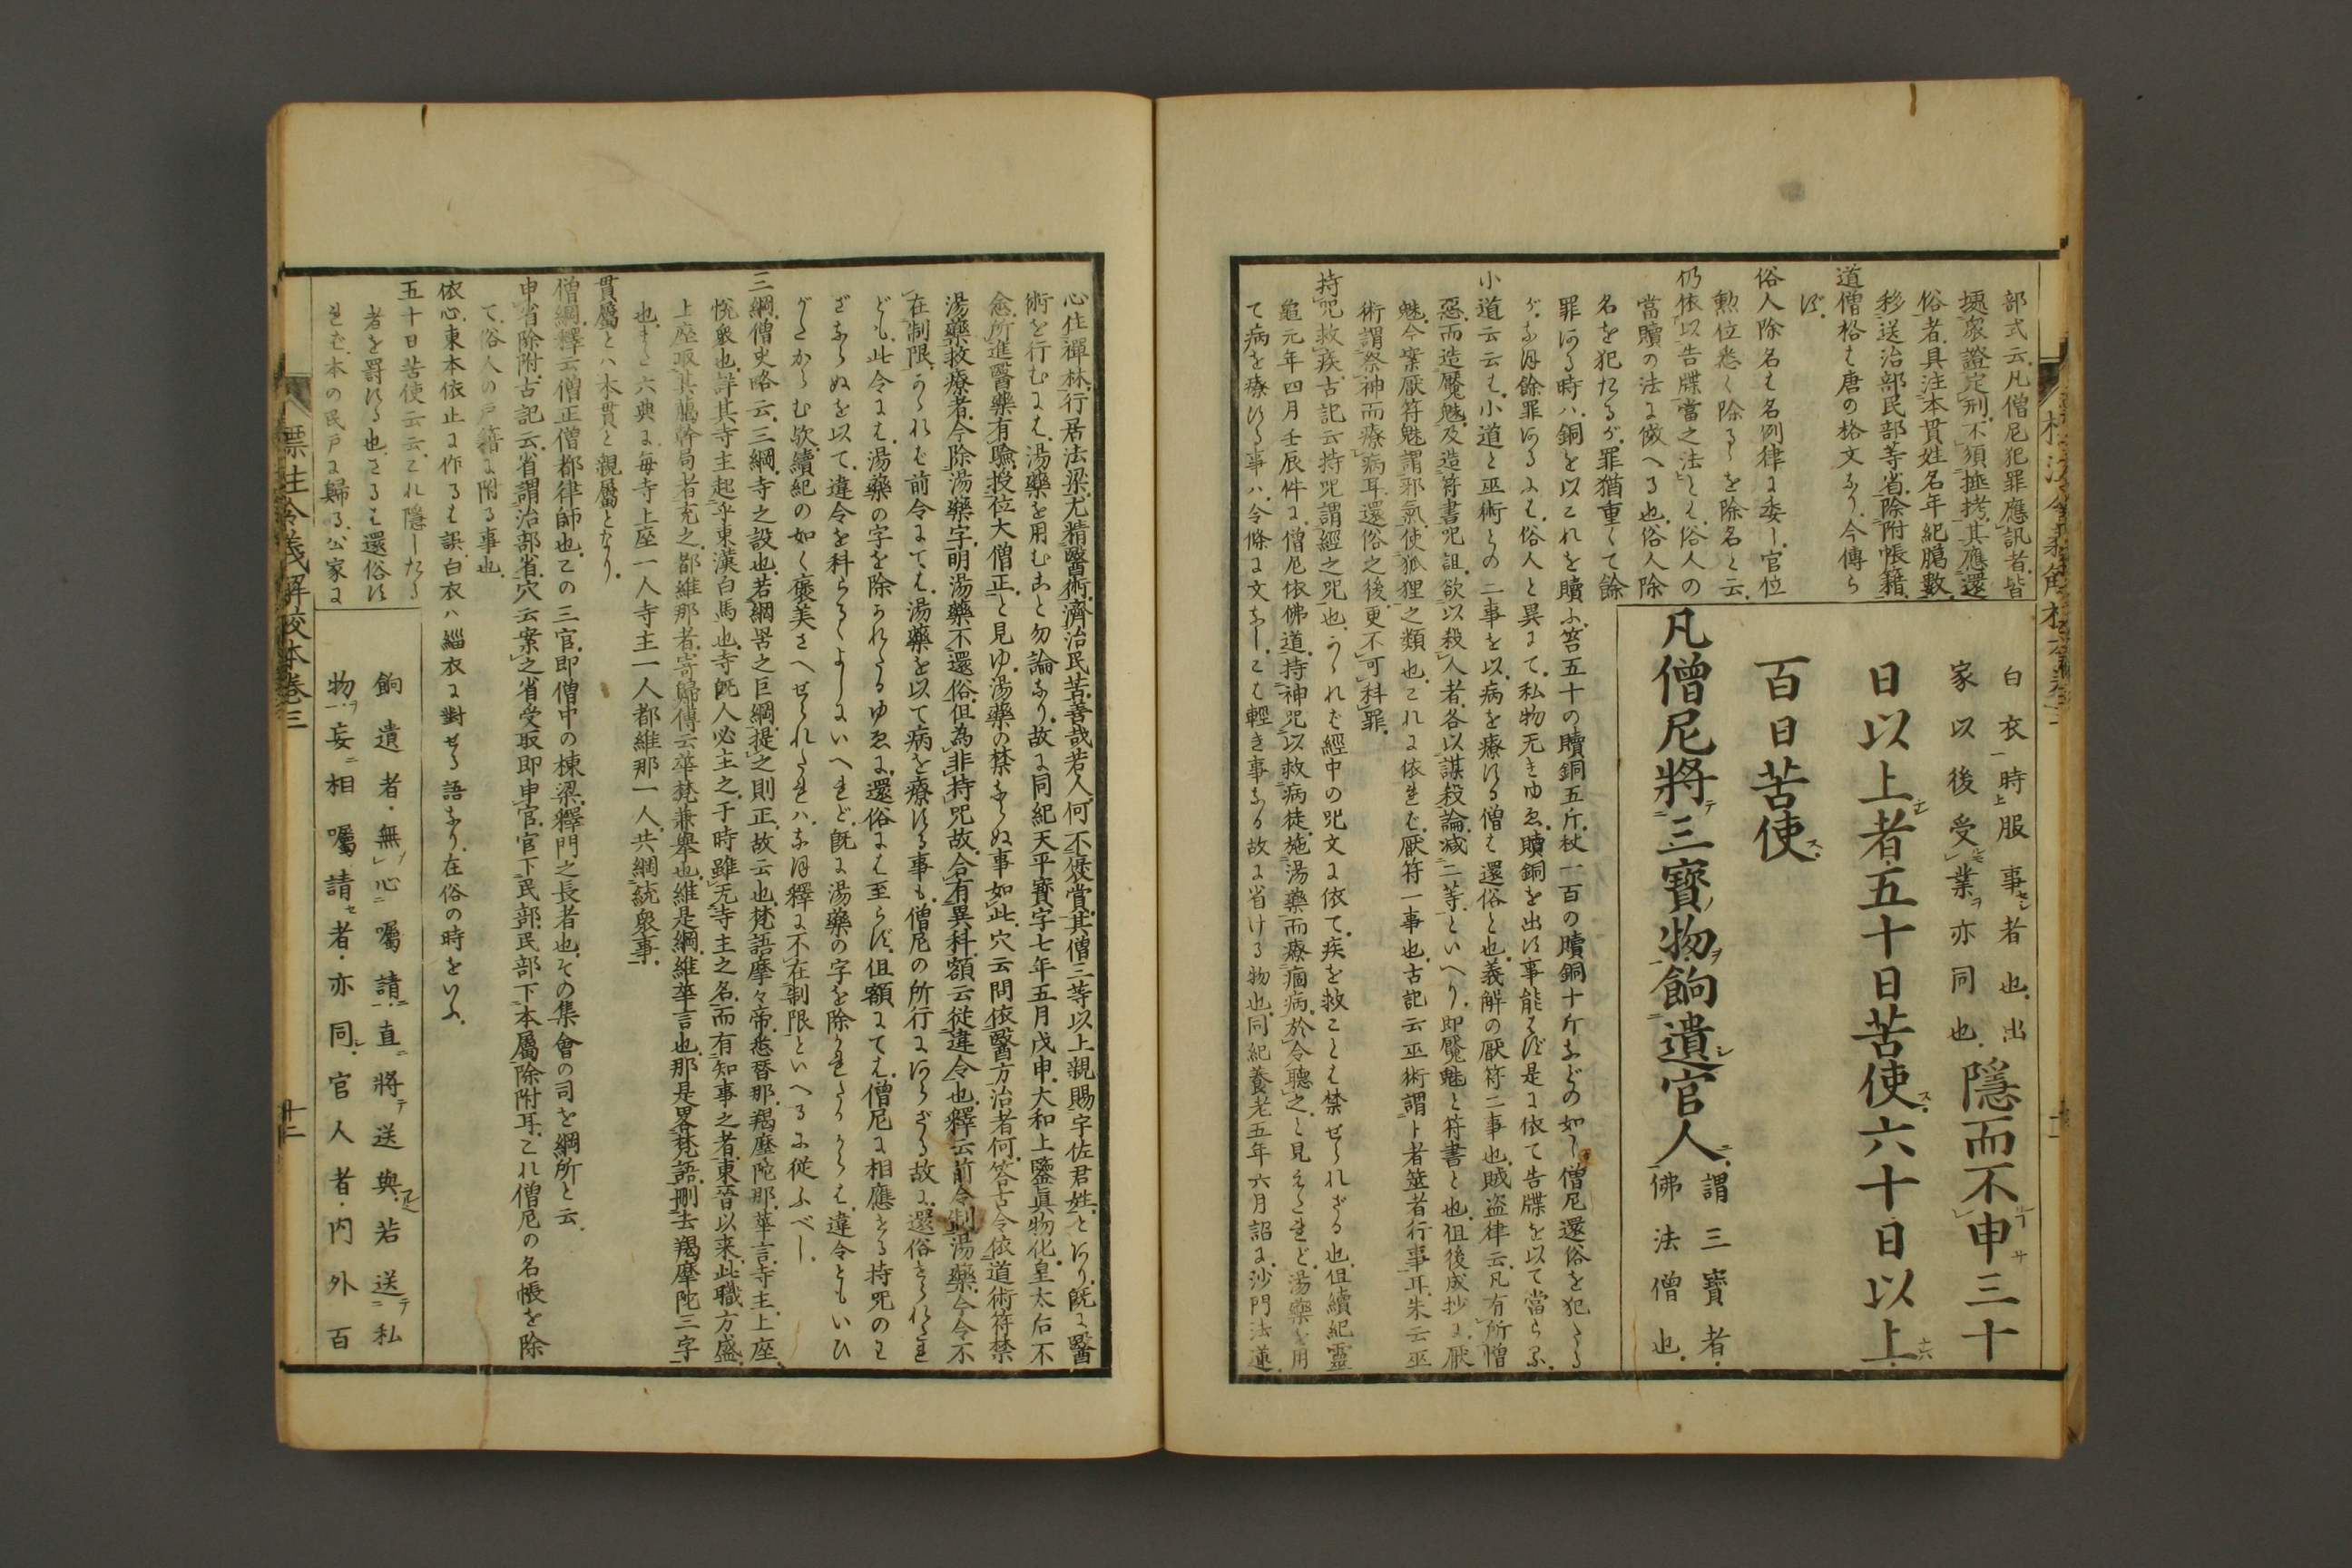 部式云、凡僧尼犯罪應訊者、皆
據衆證定刑、不須挫拷、其應還
俗者、具注本貫姓名年紀臈數、
移送治部民部等省、除附帳籍、
道僧格も唐の格文なり、今傳ら
ず、
俗人除名も名例律に委し、官位
勲位悉く除るゝを除名と云、
仍依以告牒當之法とも俗人の
當贖の法に倣へる也、俗人除
名を犯たるが、罪猶重くて餘
罪ある時ハ、銅を以これを贖ふ、笞五十の贖銅五斤、杖一百の贖銅十斤などの如し、僧尼還俗を犯たる
が、なほ餘罪あるにも、俗人と異にて、私物无きゆゑ、贖銅を出す事能はず、是に依て告牒を以て當らる、
小道云云も、小道と巫術との二事を以、病を療ずる僧も還俗と也、義解の厭符二事也、賊盗律云、凡有所憎
惡、而造魘魅、及造符書咒詛、欲以殺人者、各以謀殺論、減二等、といへり、即魘魅と符書と也、但後成抄に、厭
魅、今案厭符魅謂邪氣、使狐狸之類也、これに依れば、厭符一事也、古記云、巫術謂卜者筮者行事耳、朱云、巫
術謂祭神而療病耳、還俗之後、更不可科罪、
持咒救疾、古記云、持咒謂經之咒也、されば經中の咒文に依て、疾を救ことも禁せられざる也、但續紀靈
亀元年四月壬辰件に、僧尼依佛道、持神咒以救病徒、施湯藥而療痼病、於令聽之、と見えたれど、湯藥を用
て病を療ずる事ハ、令條に文なし、こも輕き事なる故に省ける物也、同紀養老五年六月詔に、沙門法蓮、
白衣時服事者也、出
家以後受業亦同也、
隱而不申三十
日以上者、五十日苦使、六十日以上
百日苦使、
凡僧尼將三寶物餉遺官人、
謂三寶者、
佛法僧也、
心住禪林、行居法梁、尤精醫術、濟治民苦、善哉若人、何不襃賞、其僧三等以上親、賜宇佐君姓、とあり、既に醫
術を行むにも、湯藥を用むこと勿論なり、故に同紀天平寶字七年五月戊申、大和上鑒眞物化、皇太后不
愈、所進醫藥有驗、授位大僧正、と見ゆ、湯藥の禁ならぬ事如此、穴云、問依醫方治者何、答古令依道術符禁
湯藥救療者、今除湯藥字、明湯藥不還俗、但為非持咒故、合有異科、額云、從違令也、釋云、前令制湯藥、今令不
在制限、されば前令にても、湯藥を以て病を療ずる事も、僧尼の所行にあらざる故に、還俗さられたれ
ども、此令にも、湯藥の字を除かれたるゆゑに、還俗にも至らず、但額にても、僧尼に相應せる持咒のわ
ざならぬを以て、違令を科らるゝよしにいへれど、既に湯藥の字を除かれたりからハ、違令ともいひ
がたからむ歟、續紀の如く褒美さへせられたれハ、なほ釋に不在制限といへるに従ふべし、
三綱、僧史略云、三綱、寺之設也、若綱罟之巨綱、提之則正、故云也、梵語摩々帝、悉替那、羯麼陀那、華言寺主、上座、
悦衆也、詳其寺主、起乎東漢白馬也、寺既人必主之、于時雖无寺主之名、而有知事之者、東晉以来、此職方盛、
上座取其臈幹局者充之、都維那者、寄歸傳云、華梵兼舉也、維是綱、維華言也、那是畧梵語、刪去羯摩陀三字
也、また六典に、毎寺上座一人、寺主一人、都維那一人、共綱統衆事、
貫屬とハ本貫と親屬となり、
僧綱、釋云、僧正僧都律師也、この三官、即僧中の棟梁、釋門之長者也、その集會の司を綱所と云、
申省除附、古記云、省謂治部省、穴云、案之省受取即申官、官下民部、民部下本屬、除附耳、これ僧尼の名帳を除
て、俗人の戸籍に附る事也、
依心、東本依止に作るも誤、白衣ハ緇衣に對せる語なり、在俗の時をいふ、
五十日苦使云云、これ隱したる
者を罸する也、さるも還俗す
れば、本の民戸に歸る、公家に
餉遺者、無心囑請、直將送與、若送私
物、妄相囑請者、亦同、官人者、内外百
標注令義解校本卷三
十二